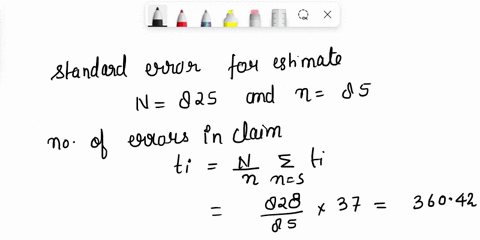 standard error for estimate
N = 825 and n = 85
no. of errors in claim
ti = N/n Σ n=s ti
= 828/85 × 37 = 360.42